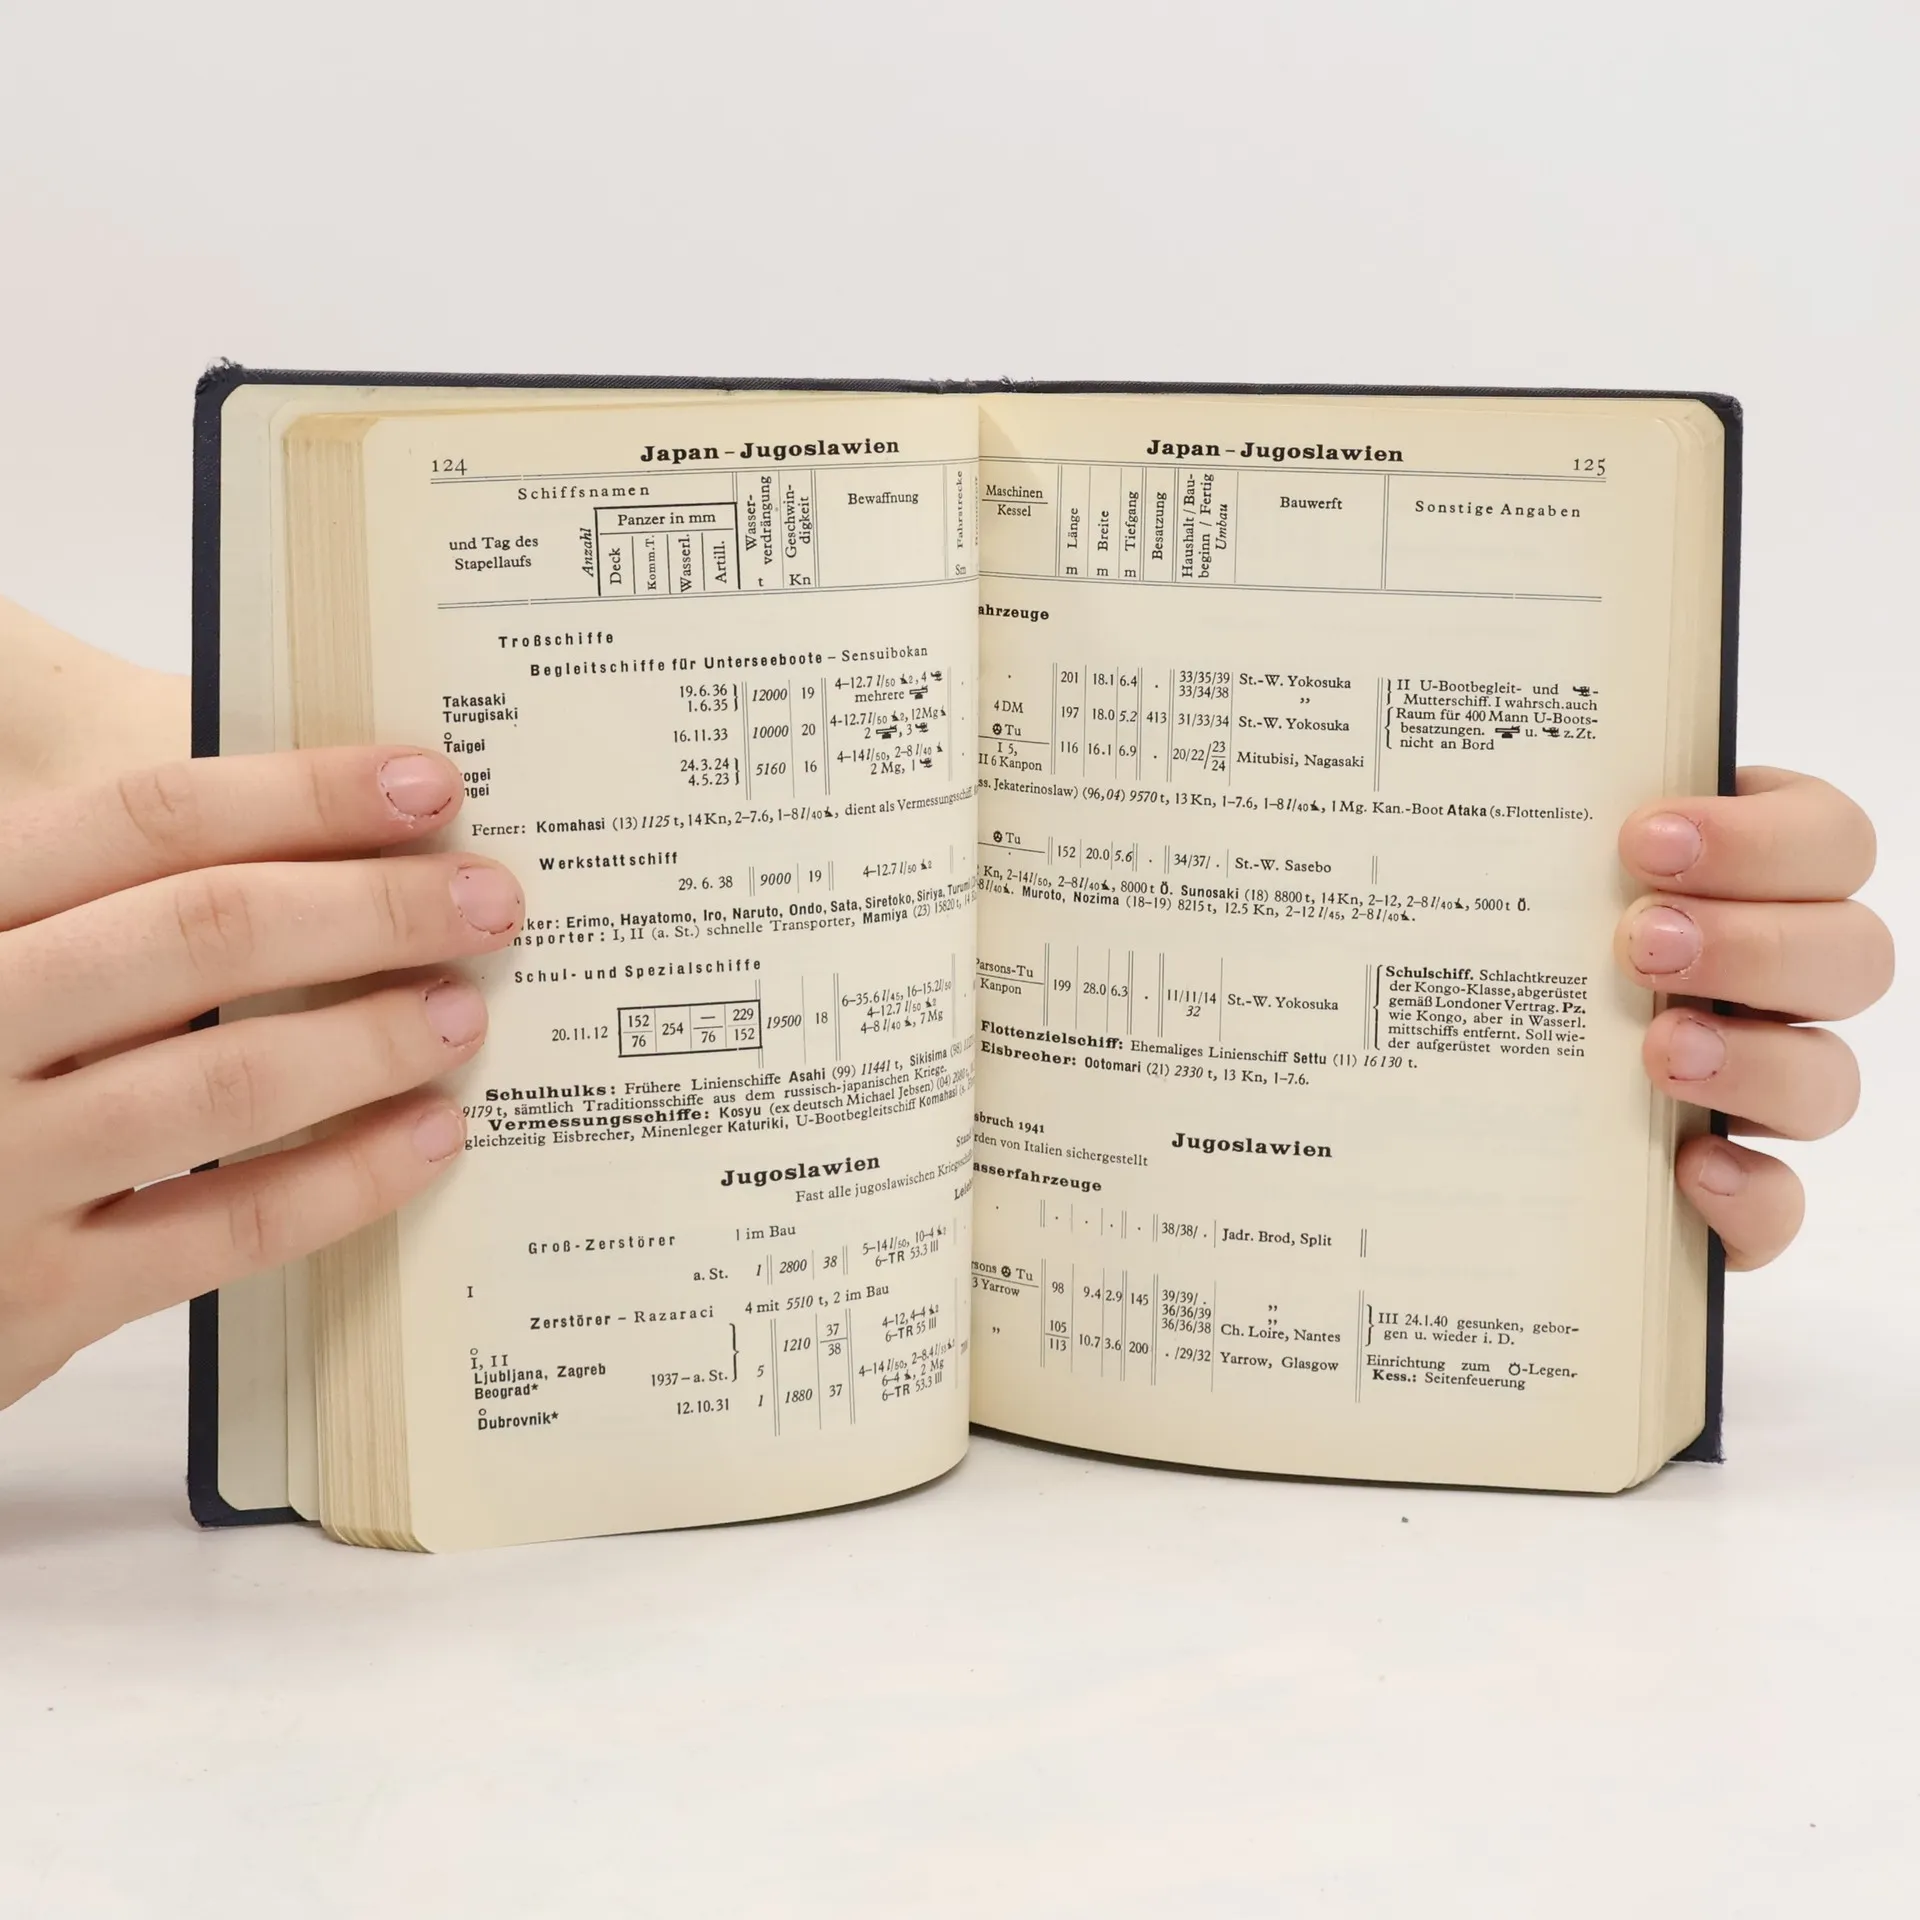 124
Japan – Jugoslawien
Schiffsnamen
und Tag des
Stapellaufs
Anzahl
Panzer in mm
Deck
Komm.T.
Wasserl.
Artill.
Wasser-
verdrängung
t
Geschwin-
digkeit
Kn
Bewaffnung
Fahrstrecke
Sm
Troßschiffe
Begleitschiffe für Unterseeboote – Sensuibokan
Takasaki 19.6.36 12000 19 4–12.7 l/50 2, 4
Turugisaki 1.6.35 mehrere
Taigei 16.11.33 10000 20 4–12.7 l/50 2, 12Mg
2 , 3
24.3.24 5160 16 4–14 l/50, 2–8 l/40
4.5.23 2 Mg, 1
Ferner: Komahasi (13) 1125 t, 14 Kn, 2–7.6, 1–8 l/40, dient als Vermessungsschiff
Werkstattschiff
29. 6. 38 9000 19 4–12.7 l/50 2
Erimo, Hayatomo, Iro, Naruto, Ondo, Sata, Siretoko, Siriya,
I, II (a. St.) schnelle Transporter, Mamiya (23) 15820 t,
Schul- und Spezialschiffe
20.11.12 152/76 254 —/76 229/152 19500 18 6–35.6 l/45, 16–15.2 l/50
4–12.7 l/50 2
4–8 l/40, 7 Mg
Schulhulks: Frühere Linienschiffe Asahi (99) 11441 t, Sikisima (98)
9179 t, sämtlich Traditionsschiffe aus dem russisch-japanischen Kriege.
Vermessungsschiffe: Kosyu (ex deutsch Michael Jebsen) (04)
gleichzeitig Eisbrecher, Minenleger Katuriki, U-Bootbegleitschiff Komahasi
Jugoslawien
Fast alle jugoslawischen
Groß-Zerstörer 1 im Bau
I a. St. 1 2800 38 5–14 l/50, 10–4 2
6–TR 53.3 III
Zerstörer – Razaraci 4 mit 5510 t, 2 im Bau
I, II
Ljubljana, Zagreb
Beograd*
1937 – a. St. 5 1210 37/38 4–12, 4–4 2
6–TR 55 III
Dubrovnik* 12.10.31 1 1880 37 4–14 l/50, 2–8.4 l/55
6–4, 2 Mg
6–TR 53.3 III
Japan – Jugoslawien
125
Maschinen
Kessel
Länge
m
Breite
m
Tiefgang
m
Besatzung
Haushalt / Bau-
beginn / Fertig
Umbau
Bauwerft
Sonstige Angaben
ahrzeuge
. 201 18.1 6.4 . 33/35/39 St.-W. Yokosuka
33/34/38 „
II U-Bootbegleit- und -
Mutterschiff. I wahrsch. auch
4 DM
Tu
197 18.0 5.2 413 31/33/34 St.-W. Yokosuka
Raum für 400 Mann U-Boots-
besatzungen. u. z. Zt.
nicht an Bord
I 5,
II 6 Kanpon
116 16.1 6.9 . 20/22/23/24 Mitubisi, Nagasaki
ss. Jekaterinoslaw) (96,04) 9570 t, 13 Kn, 1–7.6, 1–8 l/40, 1 Mg. Kan.-Boot Ataka (s. Flottenliste).
Tu 152 20.0 5.6 . 34/37/ . St.-W. Sasebo
Kn, 2–14 l/50, 2–8 l/40, 8000 t Ö. Sunosaki (18) 8800 t, 14 Kn, 2–12, 2–8 l/40, 5000 t Ö.
8 l/40. Muroto, Nozima (18–19) 8215 t, 12.5 Kn, 2–12 l/45, 2–8 l/40.
Parsons-Tu
Kanpon
199 28.0 6.3 . 11/11/14 St.-W. Yokosuka
32
Schulschiff. Schlachtkreuzer
der Kongo-Klasse, abgerüstet
gemäß Londoner Vertrag. Pz.
wie Kongo, aber in Wasserl.
mittschiffs entfernt. Soll wie-
der aufgerüstet worden sein
Flottenzielschiff: Ehemaliges Linienschiff Settu (11) 16130 t.
Eisbrecher: Ootomari (21) 2330 t, 13 Kn, 1–7.6.
sbruch 1941
Jugoslawien
rden von Italien sichergestellt
asserfahrzeuge
. . . . . 38/38/ . Jadr. Brod, Split
rsons Tu
3 Yarrow
98 9.4 2.9 145 39/39/ . „
36/36/39 „
36/36/38 Ch. Loire, Nantes
III 24.1.40 gesunken, gebor-
gen u. wieder i. D.
„ 105/113 10.7 3.6 200 . /29/32 Yarrow, Glasgow
Einrichtung zum Ö-Legen,
Kess.: Seitenfeuerung